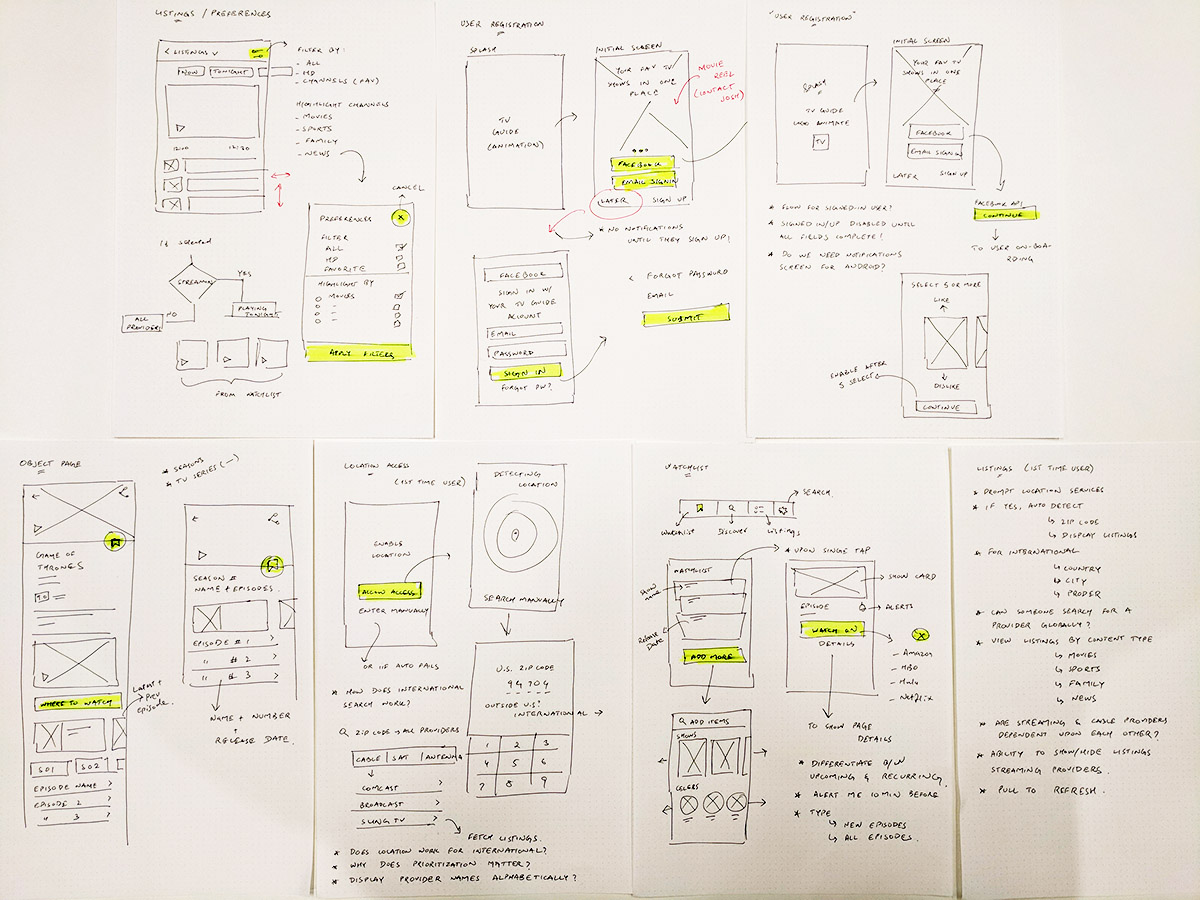 LISTINGS / PREFERENCES
< LISTINGS v
NOW
TONIGHT
12:00
12:30
FILTER BY:
- ALL
- HD
- CHANNELS (FAV)
HIGHLIGHT CHANNELS
- MOVIES
- SPORTS
- FAMILY
- NEWS
CANCEL
PREFERENCES
X
FILTER
ALL
HD
FAVORITE
HIGHLIGHT BY
MOVIES
APPLY FILTERS
If selected
STREAMING
YES
NO
PLAYING TONIGHT
ALL
PROVIDERS
FROM WATCHLIST
USER REGISTRATION
SPLASH
TV
GUIDE
(ANIMATION)
INITIAL SCREEN
YOUR FAV TV
SHOWS IN ONE
PLACE
FACEBOOK
EMAIL SIGNIN
LATER
SIGN UP
MOVIE
REEL
(CONTACT
JOSH)
* NO NOTIFICATIONS
UNTIL THEY SIGN UP!
FACEBOOK
SIGN IN W/
YOUR TV GUIDE
ACCOUNT
EMAIL
PASSWORD
SIGN IN
FORGOT PW?
< FORGOT PASSWORD
EMAIL
SUBMIT
"USER REGISTRATION"
SPLASH
TV GUIDE
LOGO ANIMATE
TV
INITIAL SCREEN
YOUR FAV TV
SHOWS IN ONE
PLACE
FACEBOOK
EMAIL SIGNUP
LATER
SIGN UP
FACEBOOK API
CONTINUE
TO USER ON-BOA-
RDING
* FLOW FOR SIGNED-IN USER?
* SIGNED IN/UP DISABLED UNTIL
ALL FIELDS COMPLETE!
* DO WE NEED NOTIFICATIONS
SCREEN FOR ANDROID?
SELECT 5 OR MORE
LIKE
DISLIKE
ENABLE AFTER
5 SELECT
CONTINUE
OBJECT PAGE
* SEASONS
* TV SERIES (-)
GAME OF
THRONES
9.0
WHERE TO WATCH
Latest +
Prev
Episode.
S01
S02
EPISODE NAME >
EPISODE 2 >
" 3 >
SEASON #
NAME + EPISODES.
EPISODE # 1 >
" # 2 >
" # 3 >
NAME + NUMBER
+
RELEASE DATE.
LOCATION ACCESS
(1ST TIME USER)
ENABLE
LOCATION
ALLOW ACCESS
ENTER MANUALLY
OR IF AUTO FAILS
DETECTING
LOCATION
SEARCH MANUALLY
* HOW DOES INTERNATIONAL
SEARCH WORK?
U.S. ZIP CODE
94704
OUTSIDE U.S.?
INTERNATIONAL
1 2 3
4 5 6
7 8 9
Q ZIP CODE → ALL PROVIDERS
CABLE
SAT
ANTENNA
COMCAST >
BROADCAST >
SLING TV >
FETCH LISTINGS.
* DOES LOCATION WORK FOR INTERNATIONAL?
* WHY DOES PRIORITIZATION MATTER?
* DISPLAY PROVIDER NAMES ALPHABETICALLY?
WATCHLIST
SEARCH
Watchlist
Discover
Listings
WATCHLIST
Show
name
Release
Date
ADD MORE
* UPON SINGLE TAP
SHOW CARD
EPISODE
ALERTS
WATCH ON
DETAILS
X
- Amazon
- HBO
- Hulu
- Netflix
Q ADD ITEMS
SHOWS
CELEBS
TO SHOW PAGE
DETAILS
* DIFFERENTIATE B/W
UPCOMING & RECURRING.
* ALERT ME 10 MIN BEFORE
* TYPE
↳ NEW EPISODES
↳ ALL EPISODES.
LISTINGS (1ST TIME USER)
* PROMPT LOCATION SERVICES
* IF YES, AUTO DETECT
↳ ZIP CODE
↳ DISPLAY LISTINGS
* FOR INTERNATIONAL
↳ COUNTRY
↳ CITY
↳ PRODER
* CAN SOMEONE SEARCH FOR A
PROVIDER GLOBALLY?
* VIEW LISTINGS BY CONTENT TYPE
↳ MOVIES
↳ SPORTS
↳ FAMILY
↳ NEWS
* ARE STREAMING & CABLE PROVIDERS
DEPENDENT UPON EACH OTHER?
* ABILITY TO SHOW/HIDE LISTINGS
STREAMING PROVIDERS.
* PULL TO REFRESH.